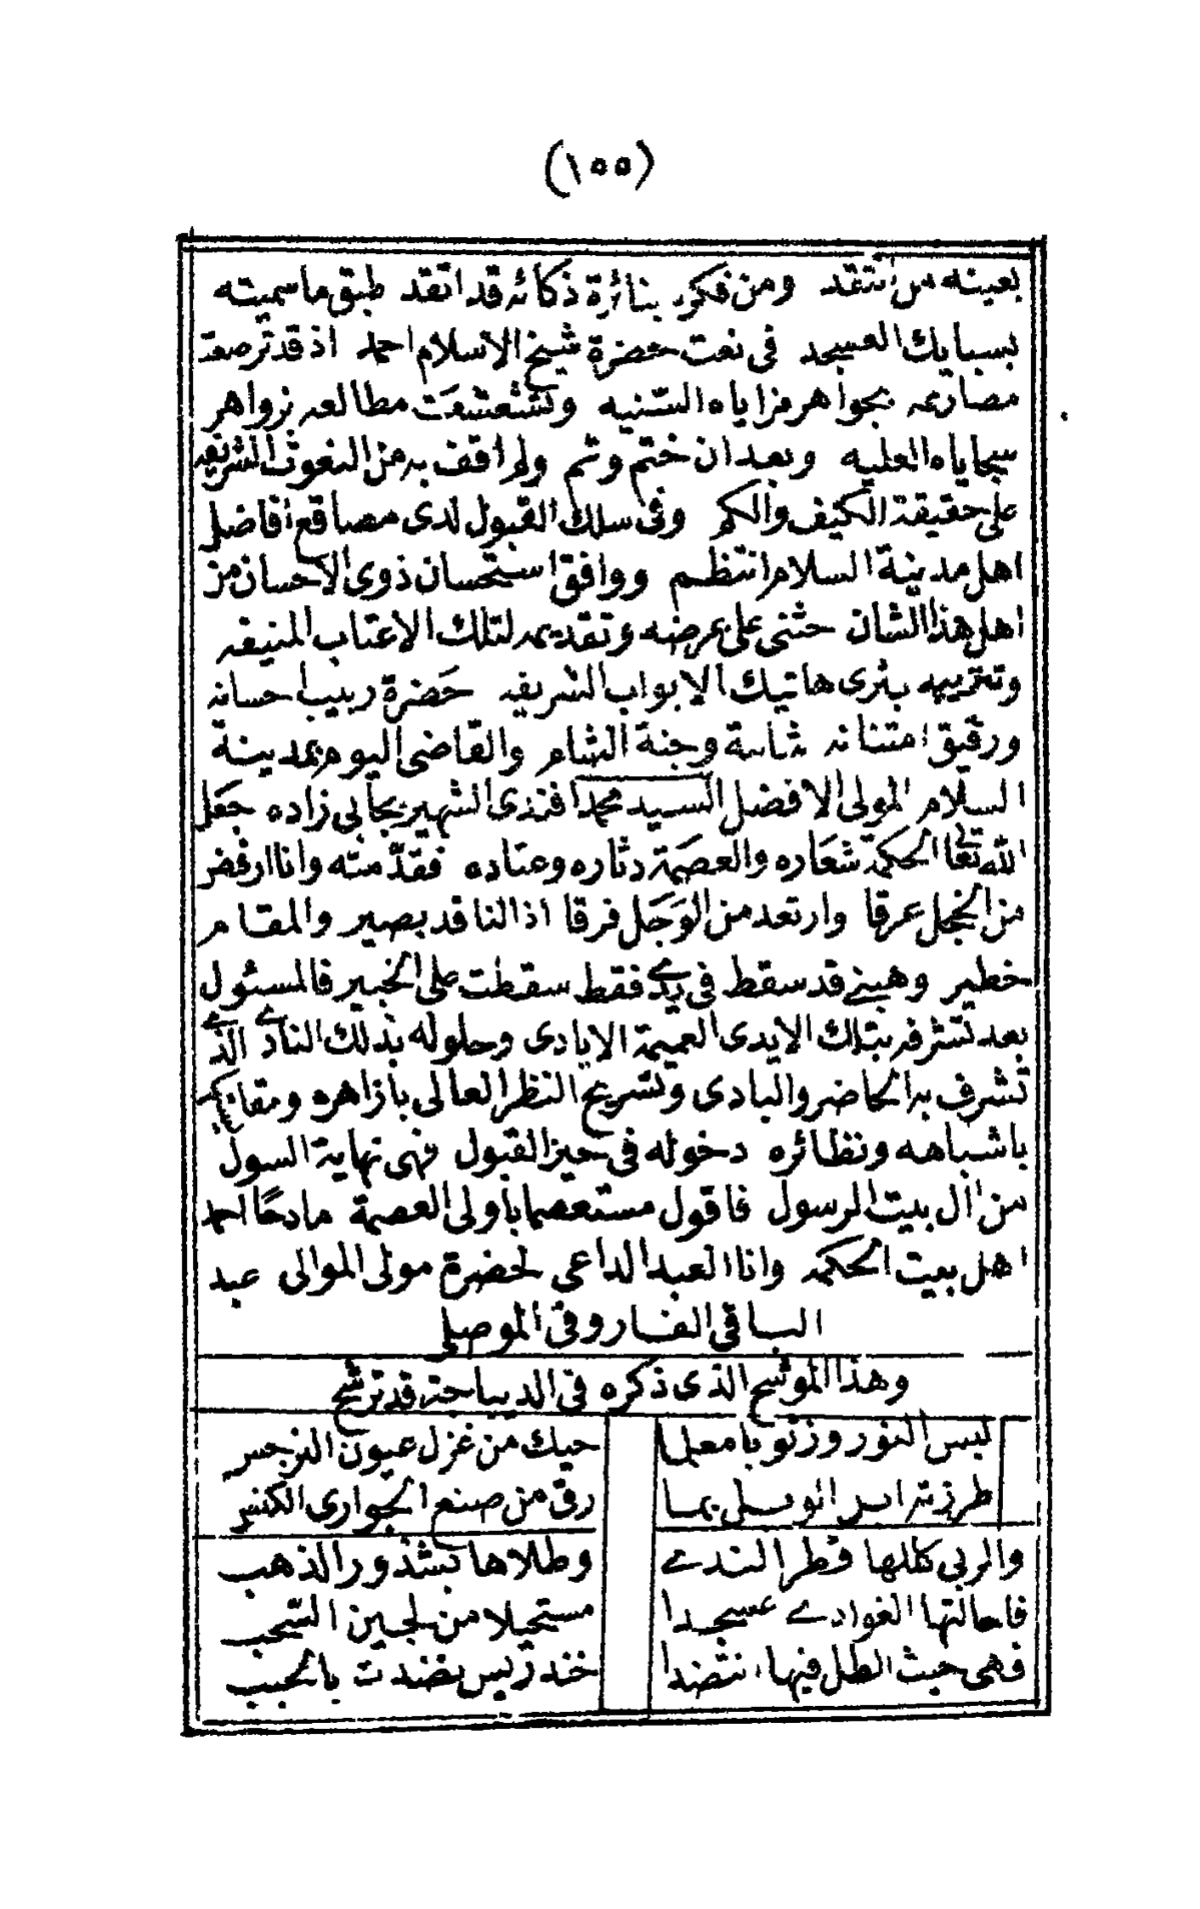 (١٥٥)
بعينه من انتقد ومن فكره بنائرة ذكائه قد اتقد طبق ما سميته
بسبايك العسجد في نعت حضرة شيخ الاسلام احمد اذ قد ترصعت
مصاريعه بجواهر مزاياه السنيه وتشعشعت مطالعه بزواهر
سجاياه العليه وبعد ان ختم وتم ولم اقف به من النعوت الشريفه
على حقيقة الكيف والكم وفي سلك القبول لدى مصاقع افاضل
اهل مدينة السلام انتظم ووافق استحسان ذوى الاحسان من
اهل هذا الشان حثنى على عرضه وتقديمه لتلك الاعتاب المنيفه
وتقريبه بثرى هاتيك الابواب الشريفه حضرة ربيب احسانه
ورقيق امتنانه شامة وجنة الشام والقاضى اليوم بمدينة
السلام المولى الافضل السيد محمد افندى الشهير بجابي زاده جعل
الله تعا الحكمة شعاره والعصمة دثاره وعتاده فقدمته وانا ارفض
من الخجل عرقا وارتعد من الوجل فرقا اذ الناقد بصير والمقام
خطير وهبنى قد سقط في يدى فقط سقطت على الخبير فالمسئول
بعد تشرفه بتلك الايدى العميمة الايادى وحلوله بذلك النادى الذى
تشرف به الحاضر والبادى وتسريح النظر العالى بازاهره
باشباهه ونظائره دخوله في حيز القبول فهى نهاية السول
من ال بيت الرسول فاقول مستعصما باولى العصمة مادحا احمد
اهل بيت الحكمه وانا العبد الداعى لحضرة مولى الموالى عبد
الباقي الفاروقى الموصلى
وهذا الموشح الذى ذكره في الديباجة قد ترشح
لبس النوروز ثوبا معلما حيك من غزل عيون النرجس
طرزته ابر الوبل بما رق من صنع الجوارى الكنس
والربى كللها قطر الندى وطلاها بشذور الذهب
فاحالتها الغوادى عسجدا مستحيلا من لجين السحب
فهى حيث الطل فيها انتضدا خندريس نضدت بالحبب